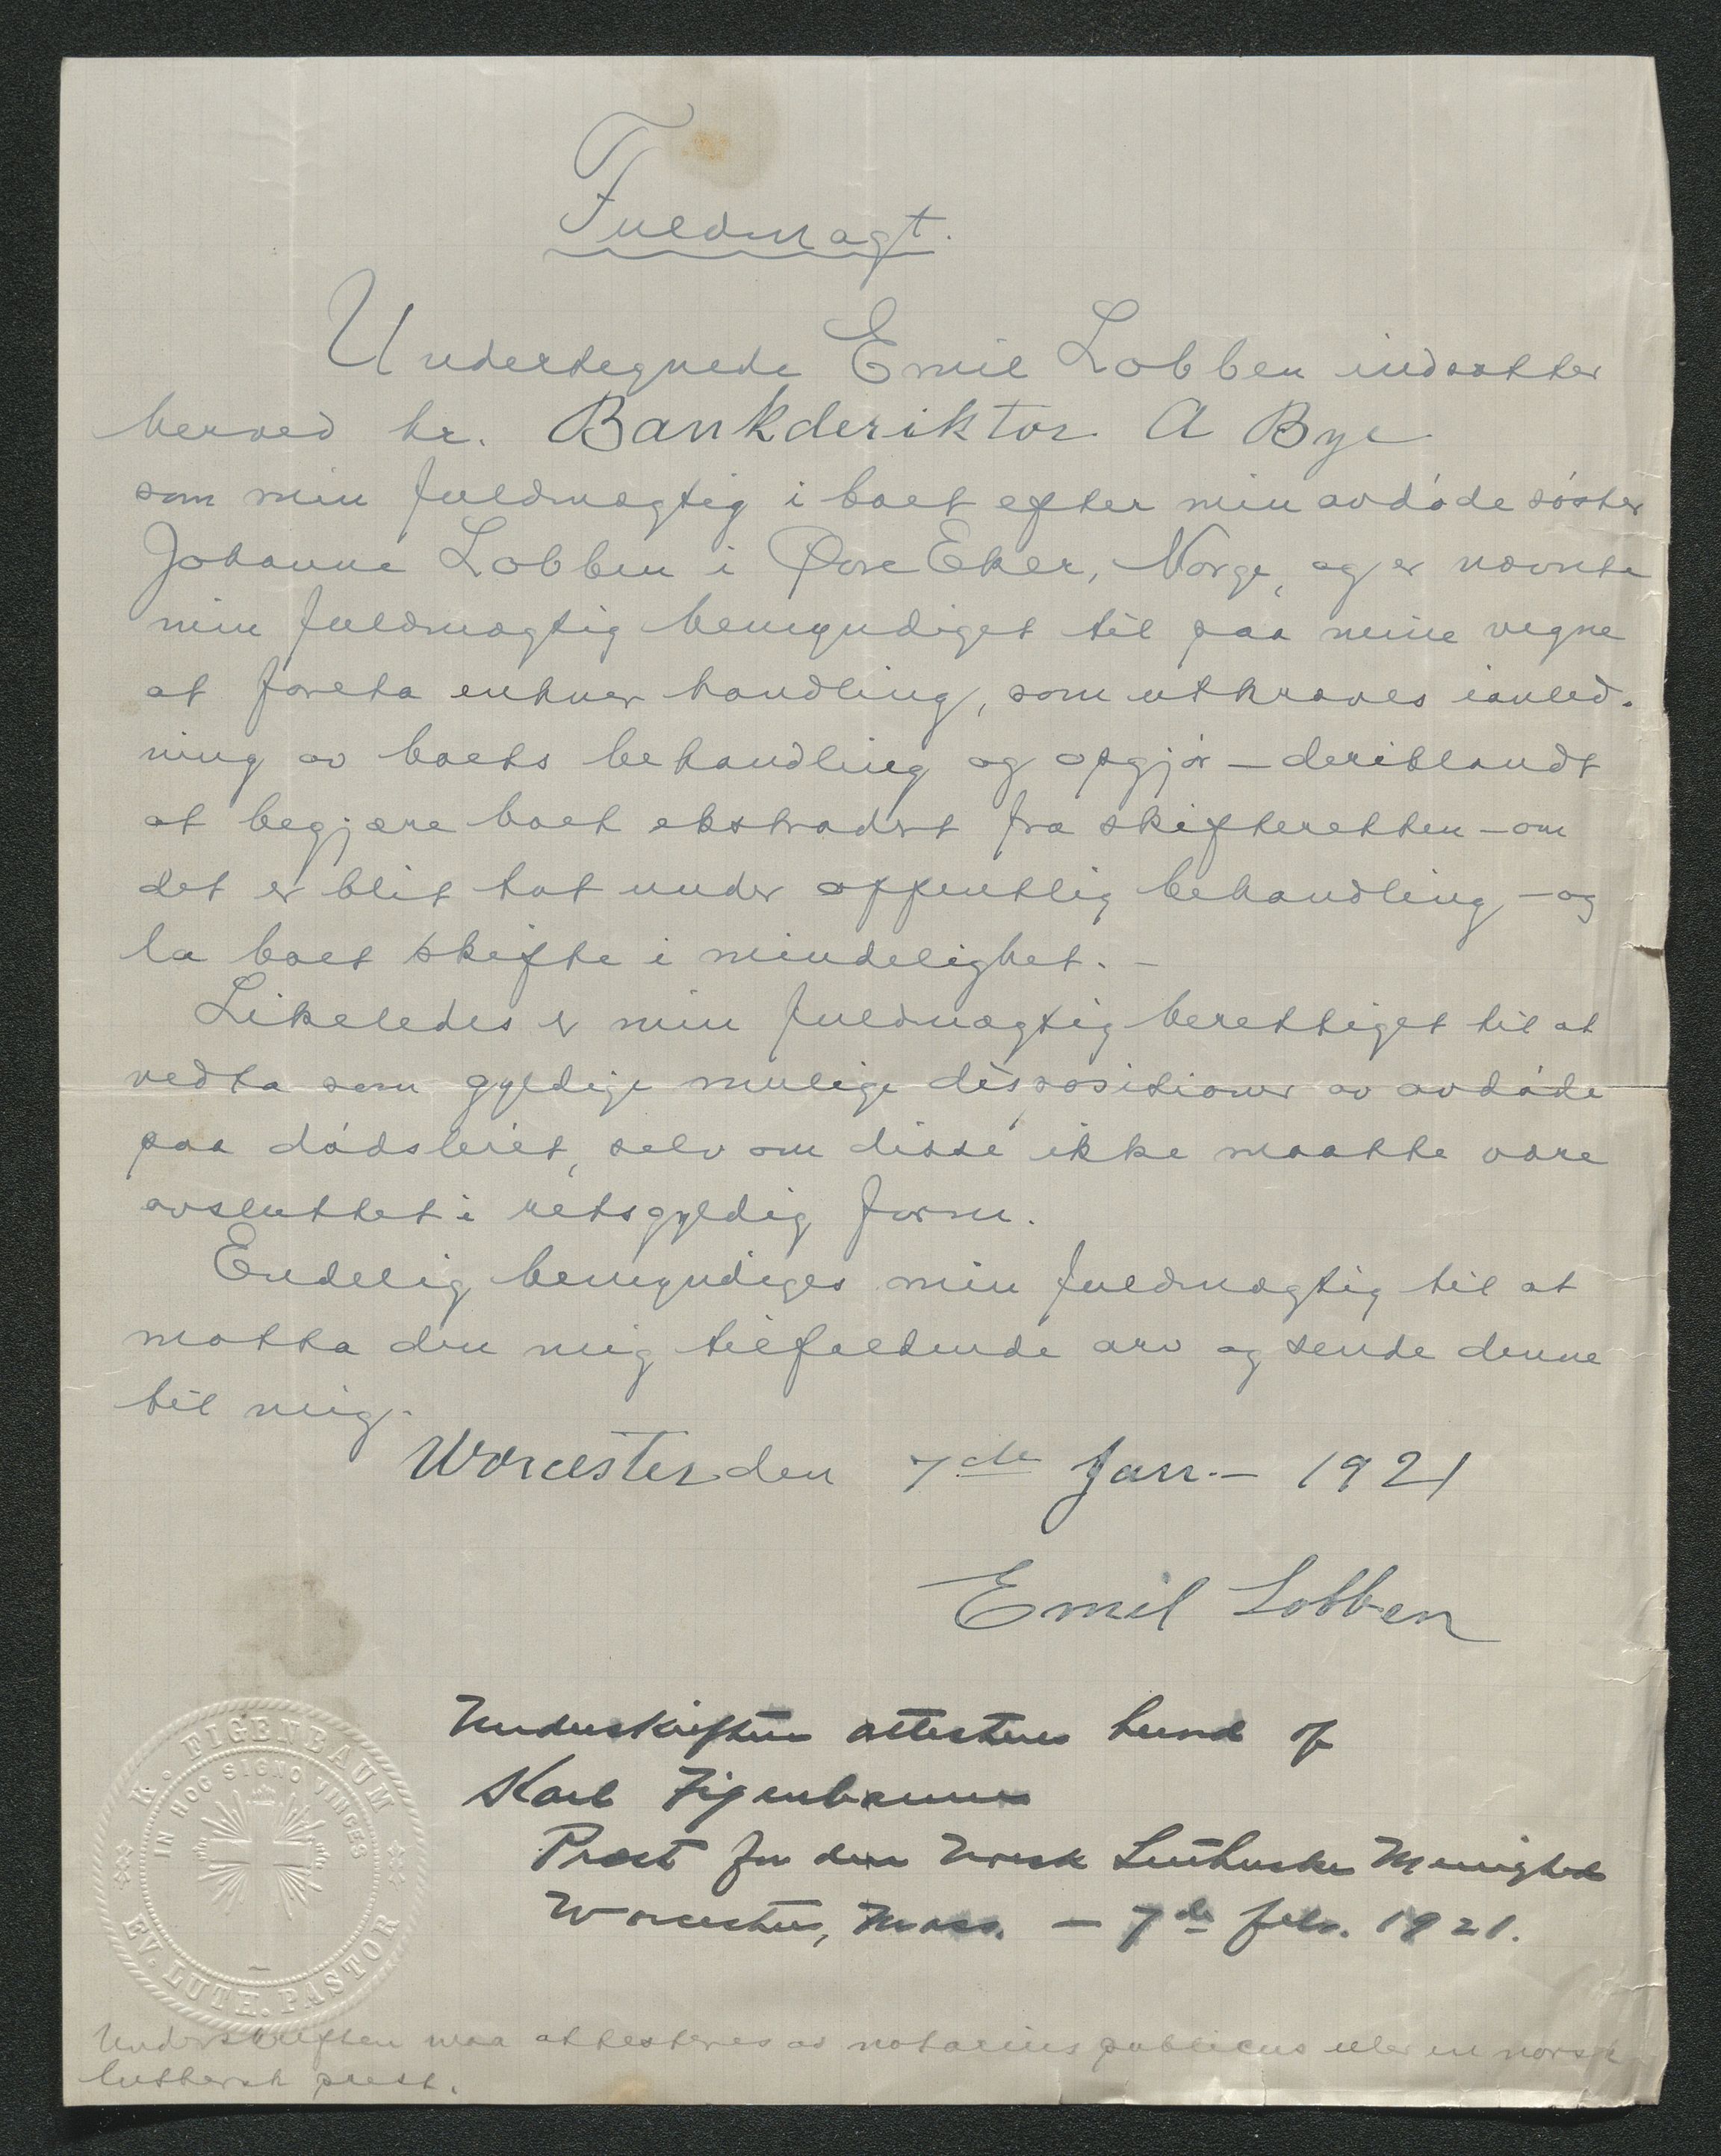 Fuldmagt.
Undertegnede Emil Lobben indsætter
herved hr. Bankderiktor A Bye
som min fuldmægtig i boet efter min avdøde søster
Johanne Lobben i Øvre Eker, Norge, og er nævnte
min fuldmægtig bemyndiget til paa mine vegne
at foreta enhver handling, som utkræves ianled-
ning av boets behandling og opgjør - deriblandt
at begjære boet ekstradert fra skifteretten - om
det er blit tat under offentlig behandling - og
la boet skifte i mindelighet. -
Likeledes er min fuldmægtig berettiget til at
vedta som gyldige mulige dispositioner av avdøde
paa dødsleiet, selv om disse ikke maatte være
avsluttet i retsgyldig form.
Endelig bemyndiges min fuldmægtig til at
motta den mig tilfaldende arv og sende denne
til mig.
Worcester den 7de Jan. - 1921
Emil Lobben
Underskriften attesteres herved af
Karl Figenbaum
Præst for den Norsk Lutherske Menighed
Worcester, Mass. - 7de feb. 1921.
K. FIGENBAUM
IN HOC SIGNO VINCES
EV. LUTH. PASTOR
Underskriften maa attesteres av notarius publicus eller en norsk
luthersk prest.